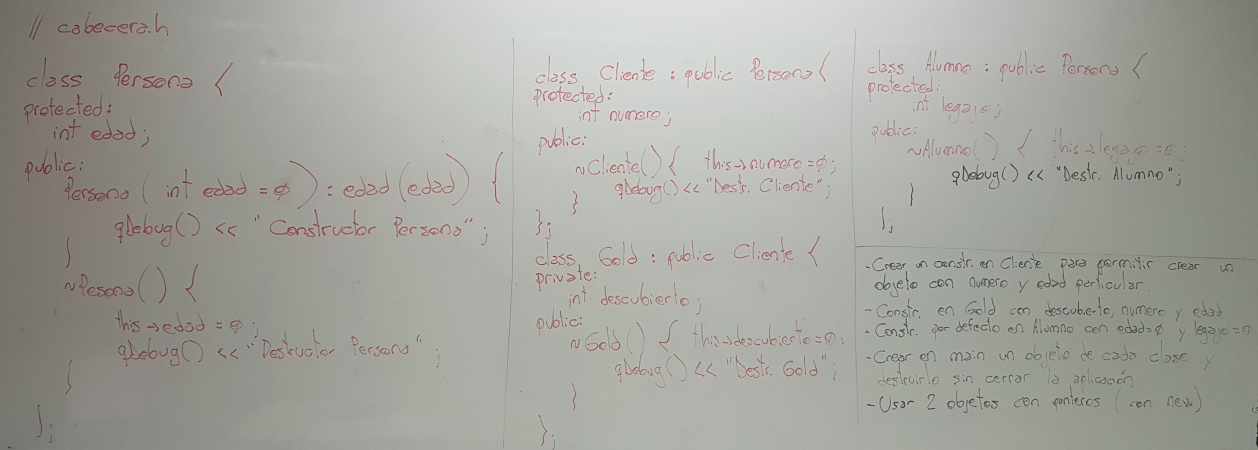 // cabecera.h
class Persona {
protected:
int edad;
public:
Persona ( int edad = 0 ) : edad (edad) {
qDebug() << "Constructor Persona";
}
~Pesona() {
this->edad = 0;
qDebug() << "Destructor Persona";
}
};
class Cliente : public Persona {
protected:
int numero;
public:
~Cliente() { this->numero = 0;
qDebug() << "Destr. Cliente";
}
};
class Gold : public Cliente {
private:
int descubierto;
public:
~Gold() { this->descubierto = 0;
qDebug() << "Destr. Gold";
}
};
class Alumno : public Persona {
protected:
int legajo;
public:
~Alumno() { this->legajo = 0;
qDebug() << "Destr. Alumno";
}
};
- Crear un constr. en Cliente para permitir crear un
objeto con numero y edad particular.
- Constr. en Gold con descubierto, numero y edad
- Constr. por defecto en Alumno con edad=0 y legajo=0
- Crear en main un objeto de cada clase y
destruirlo sin cerrar la aplicación.
- Usar 2 objetos con punteros (con new)